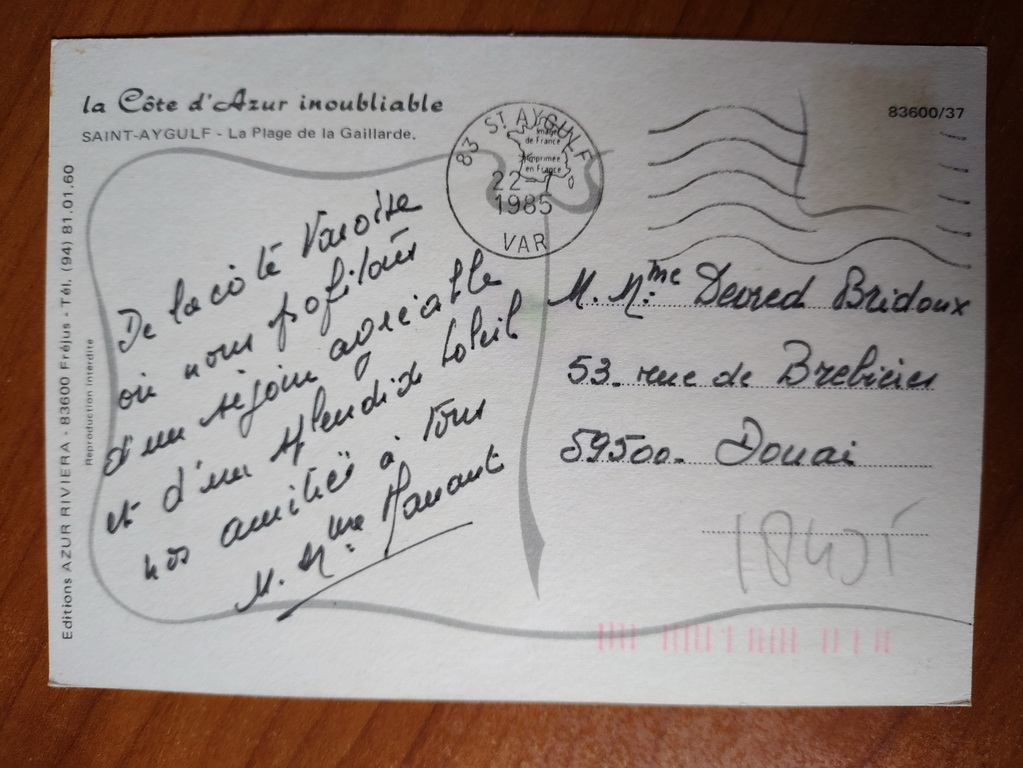 la Côte d'Azur inoubliable
SAINT-AYGULF - La Plage de la Gaillarde.
83600/37
83 ST AYGULF
Image
de France
Imprimée
en France
22-7
1985
VAR
Editions AZUR RIVIERA - 83600 Fréjus - Tél. (94) 81.01.60
Reproduction interdite
De la côte Varoise
où nous profitons
d'un séjour agréable
et d'un splendide soleil
nos amitiés à tous
M. Mme
M. Mme Devred Bridoux
53. rue de Brebières
59500. Douai